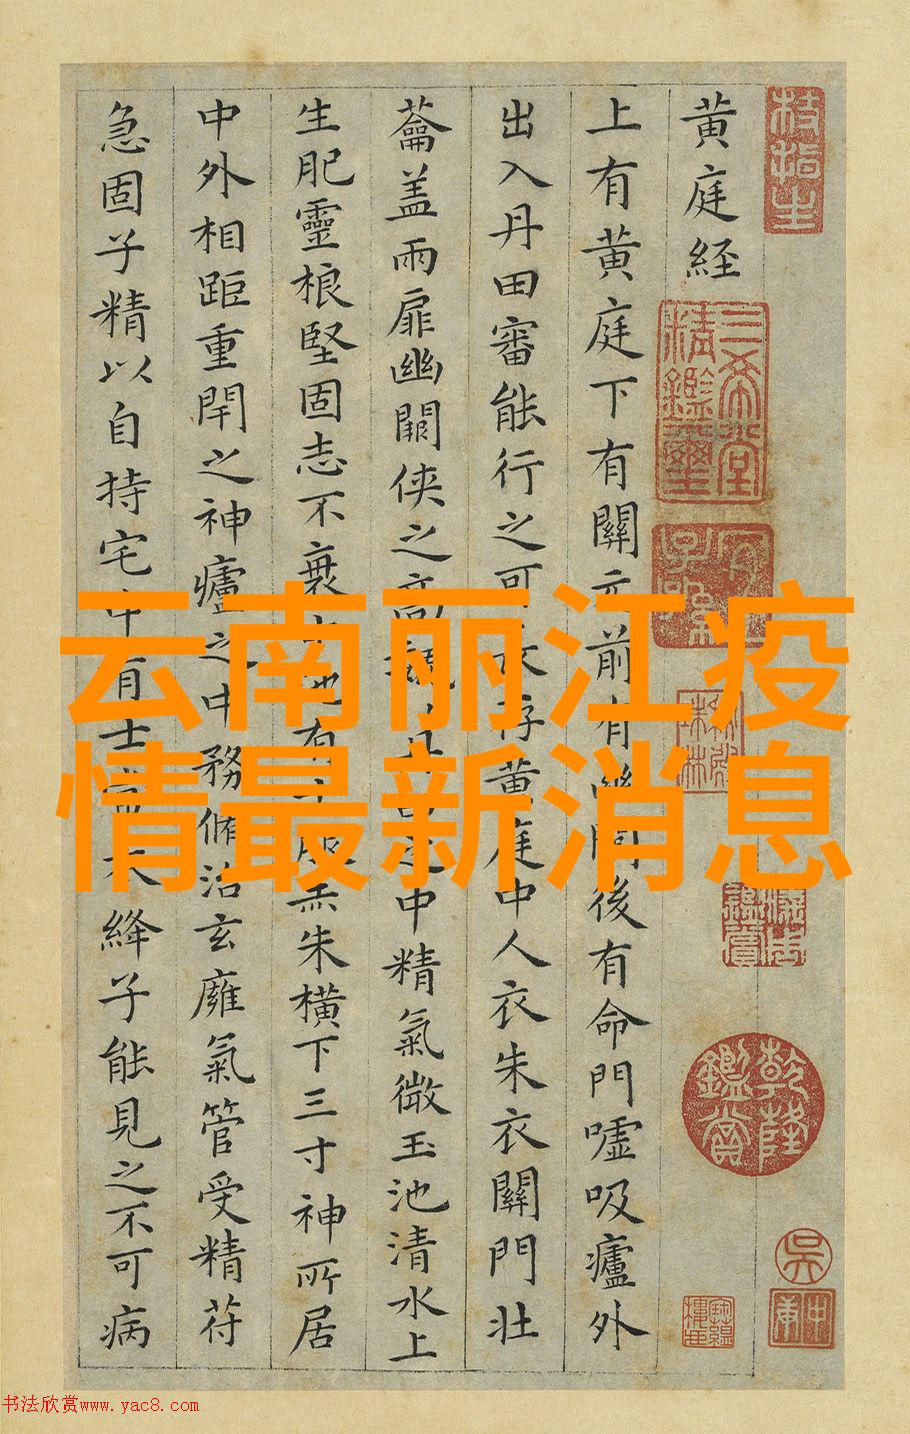 枝指生
黄庭経
三希堂精鑑璽
宜子孫
乾隆鑑賞
吳
上有黄庭下有關元前有幽闕後有命門嘘吸廬外
出入丹田審能行之可存黄庭中人衣朱衣關門壯
蘥盖兩扉幽闕俠之高中精氣微玉池清水上
生肥靈根堅固志不衰池有士服赤朱横下三寸神所居
中外相距重閈之神廬之中務脩治玄廱氣管受精苻
急固子精以自持宅中有士衣絳子能見之不可病
云南丽江疫
情最新消息
书法欣赏www.yac8.com